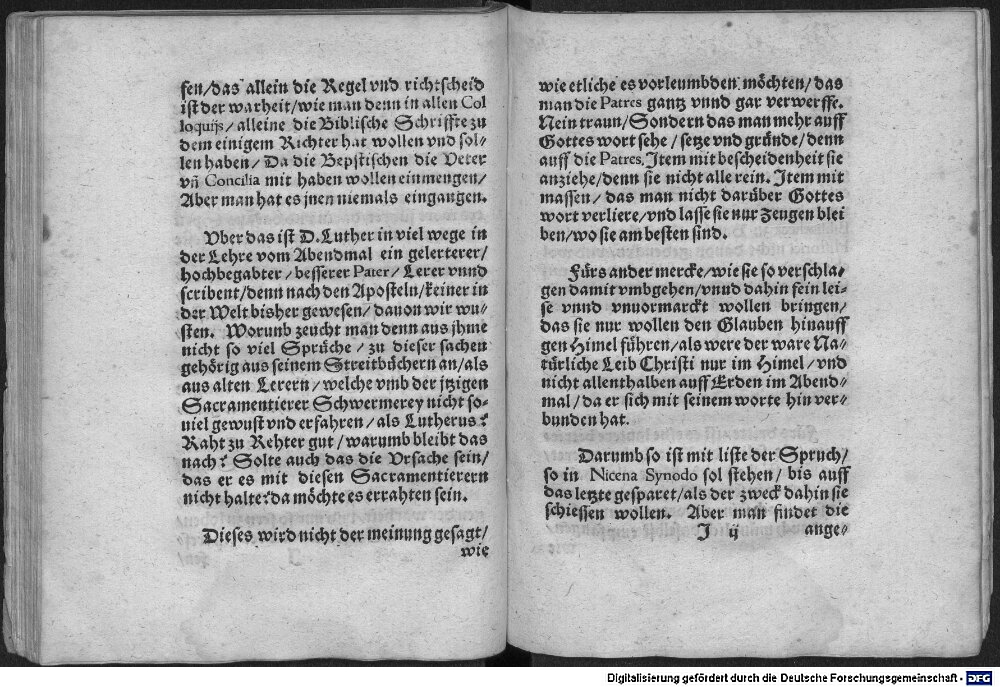 sen/das allein die Regel vnd richtscheid
ist der warheit/wie man denn in allen Col
loquijs/alleine die Biblische Schrifft zu
dem einigem Richter hat wollen vnd sol⸗
len haben/Da die Bepstischen die Veter
vñ Concilia mit haben wollen einmengen/
Aber man hat es jnen niemals eingangen.
Vber das ist D. Luther in viel wege in
der Lehre vom Abendmal ein gelerterer/
hochbegabter/besserer Pater/Lerer vnnd
scribent/denn nach den Aposteln/keiner in
der Welt bisher gewesen/dauon wir wu⸗
sten. Worumb zeucht man denn aus jhme
nicht so viel Sprüche/zu dieser sachen
gehörig aus seinem Streitbüchern an/als
aus alten Lerern/welche vmb der jtzigen
Sacramentierer Schwermerey nicht so⸗
uiel gewust vnd erfahren/als Lutherus?
Raht zu Rehter gut/warumb bleibt das
nach? Solte auch das die Vrsache sein/
das er es mit diesen Sacramentierern
nicht halte? da möchte es errahten sein.
Dieses wird nicht der meinung gesagt/
wie
wie etliche es vorleumbden möchten/das
man die Patres gantz vnnd gar verwerffe.
Nein traun/Sondern das man mehr auff
Gottes wort sehe/setze vnd gründe/denn
auff die Patres, Item mit bescheidenheit sie
anziehe/denn sie nicht alle rein. Item mit
massen/das man nicht darüber Gottes
wort verliere/vnd lasse sie nur Zeugen blei
ben/wo sie am besten sind.
Fürs ander mercke/wie sie so verschla⸗
gen damit vmbgehen/vnnd dahin fein lei⸗
se vnnd vnuormarckt wollen bringen/
das sie nur wollen den Glauben hinauff
gen Himel führen/als were der ware Na⸗
türliche Leib Christi nur im Himel/vnd
nicht allenthalben auff Erden im Abend⸗
mal/da er sich mit seinem worte hin ver⸗
bunden hat.
Darumb so ist mit liste der Spruch/
so in Nicena Synodo sol stehen/bis auff
das letzte gesparet/als der zweck dahin sie
schiessen wollen. Aber man findet die
J ij ange⸗
Digitalisierung gefördert durch die Deutsche Forschungsgemeinschaft - DFG